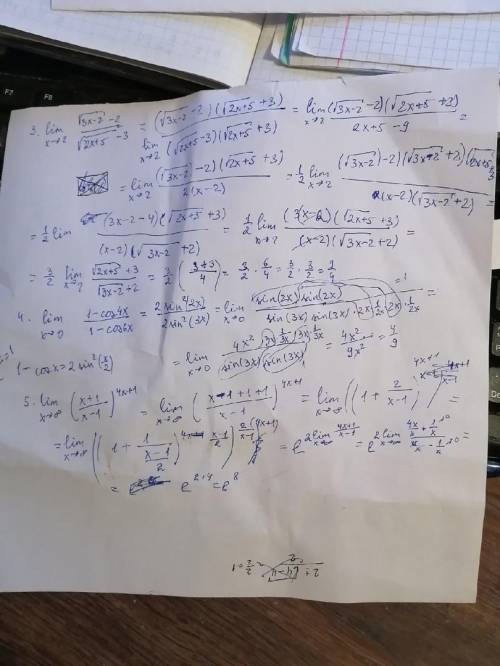 3. lim x→2 (√3x-2 -2)/(√2x+5 -3) = lim x→2 (√3x-2 -2)(√2x+5 +3)/(√2x+5 -3)(√2x+5 +3) = lim x→2 (√3x-2 -2)(√2x+5 +3)/2x+5-9 =
= lim x→2 (√3x-2 -2)(√2x+5 +3)/2(x-2) = 1/2 lim x→2 (√3x-2 -2)(√3x-2 +2)(√2x+5 +3)/(x-2)(√3x-2 +2) =
= 1/2 lim (3x-2-4)(√2x+5 +3)/(x-2)(√3x-2 +2) = 1/2 lim x→2 (3(x-2)(√2x+5 +3)/(x-2)(√3x-2 +2) =
= 3/2 lim x→2 √2x+5 +3/√3x-2 +2 = 3/2 (3+3/4) = 3/2 · 6/4 = 3/2 · 3/2 = 9/4
4. lim x→0 1-cos4x/1-cos6x = 2sin²(2x)/2sin²(3x) = lim x→0 sin(2x) sin(2x)/sin(3x) sin(3x) · 2x · 1/2x · 2x · 1/2x =
1-cosx = 2sin²(x/2) = lim x→0 4x² · 3x · 1/3x · 3x · 1/3x/sin(3x) sin(3x) = 4x²/9x² = 4/9
5. lim x→∞ (x+1/x-1)^4x+1 = lim x→∞ (x-1+1+1/x-1)^4x+1 = lim x→∞ ((1 + 2/x-1)^4x+1 =
= lim x→∞ ((1 + 1/(x-1/2))^x-1/2)^2(4x+1)/x-1 = e^2 lim x→∞ 4x+1/x-1 =
= e^2·4 = e^8